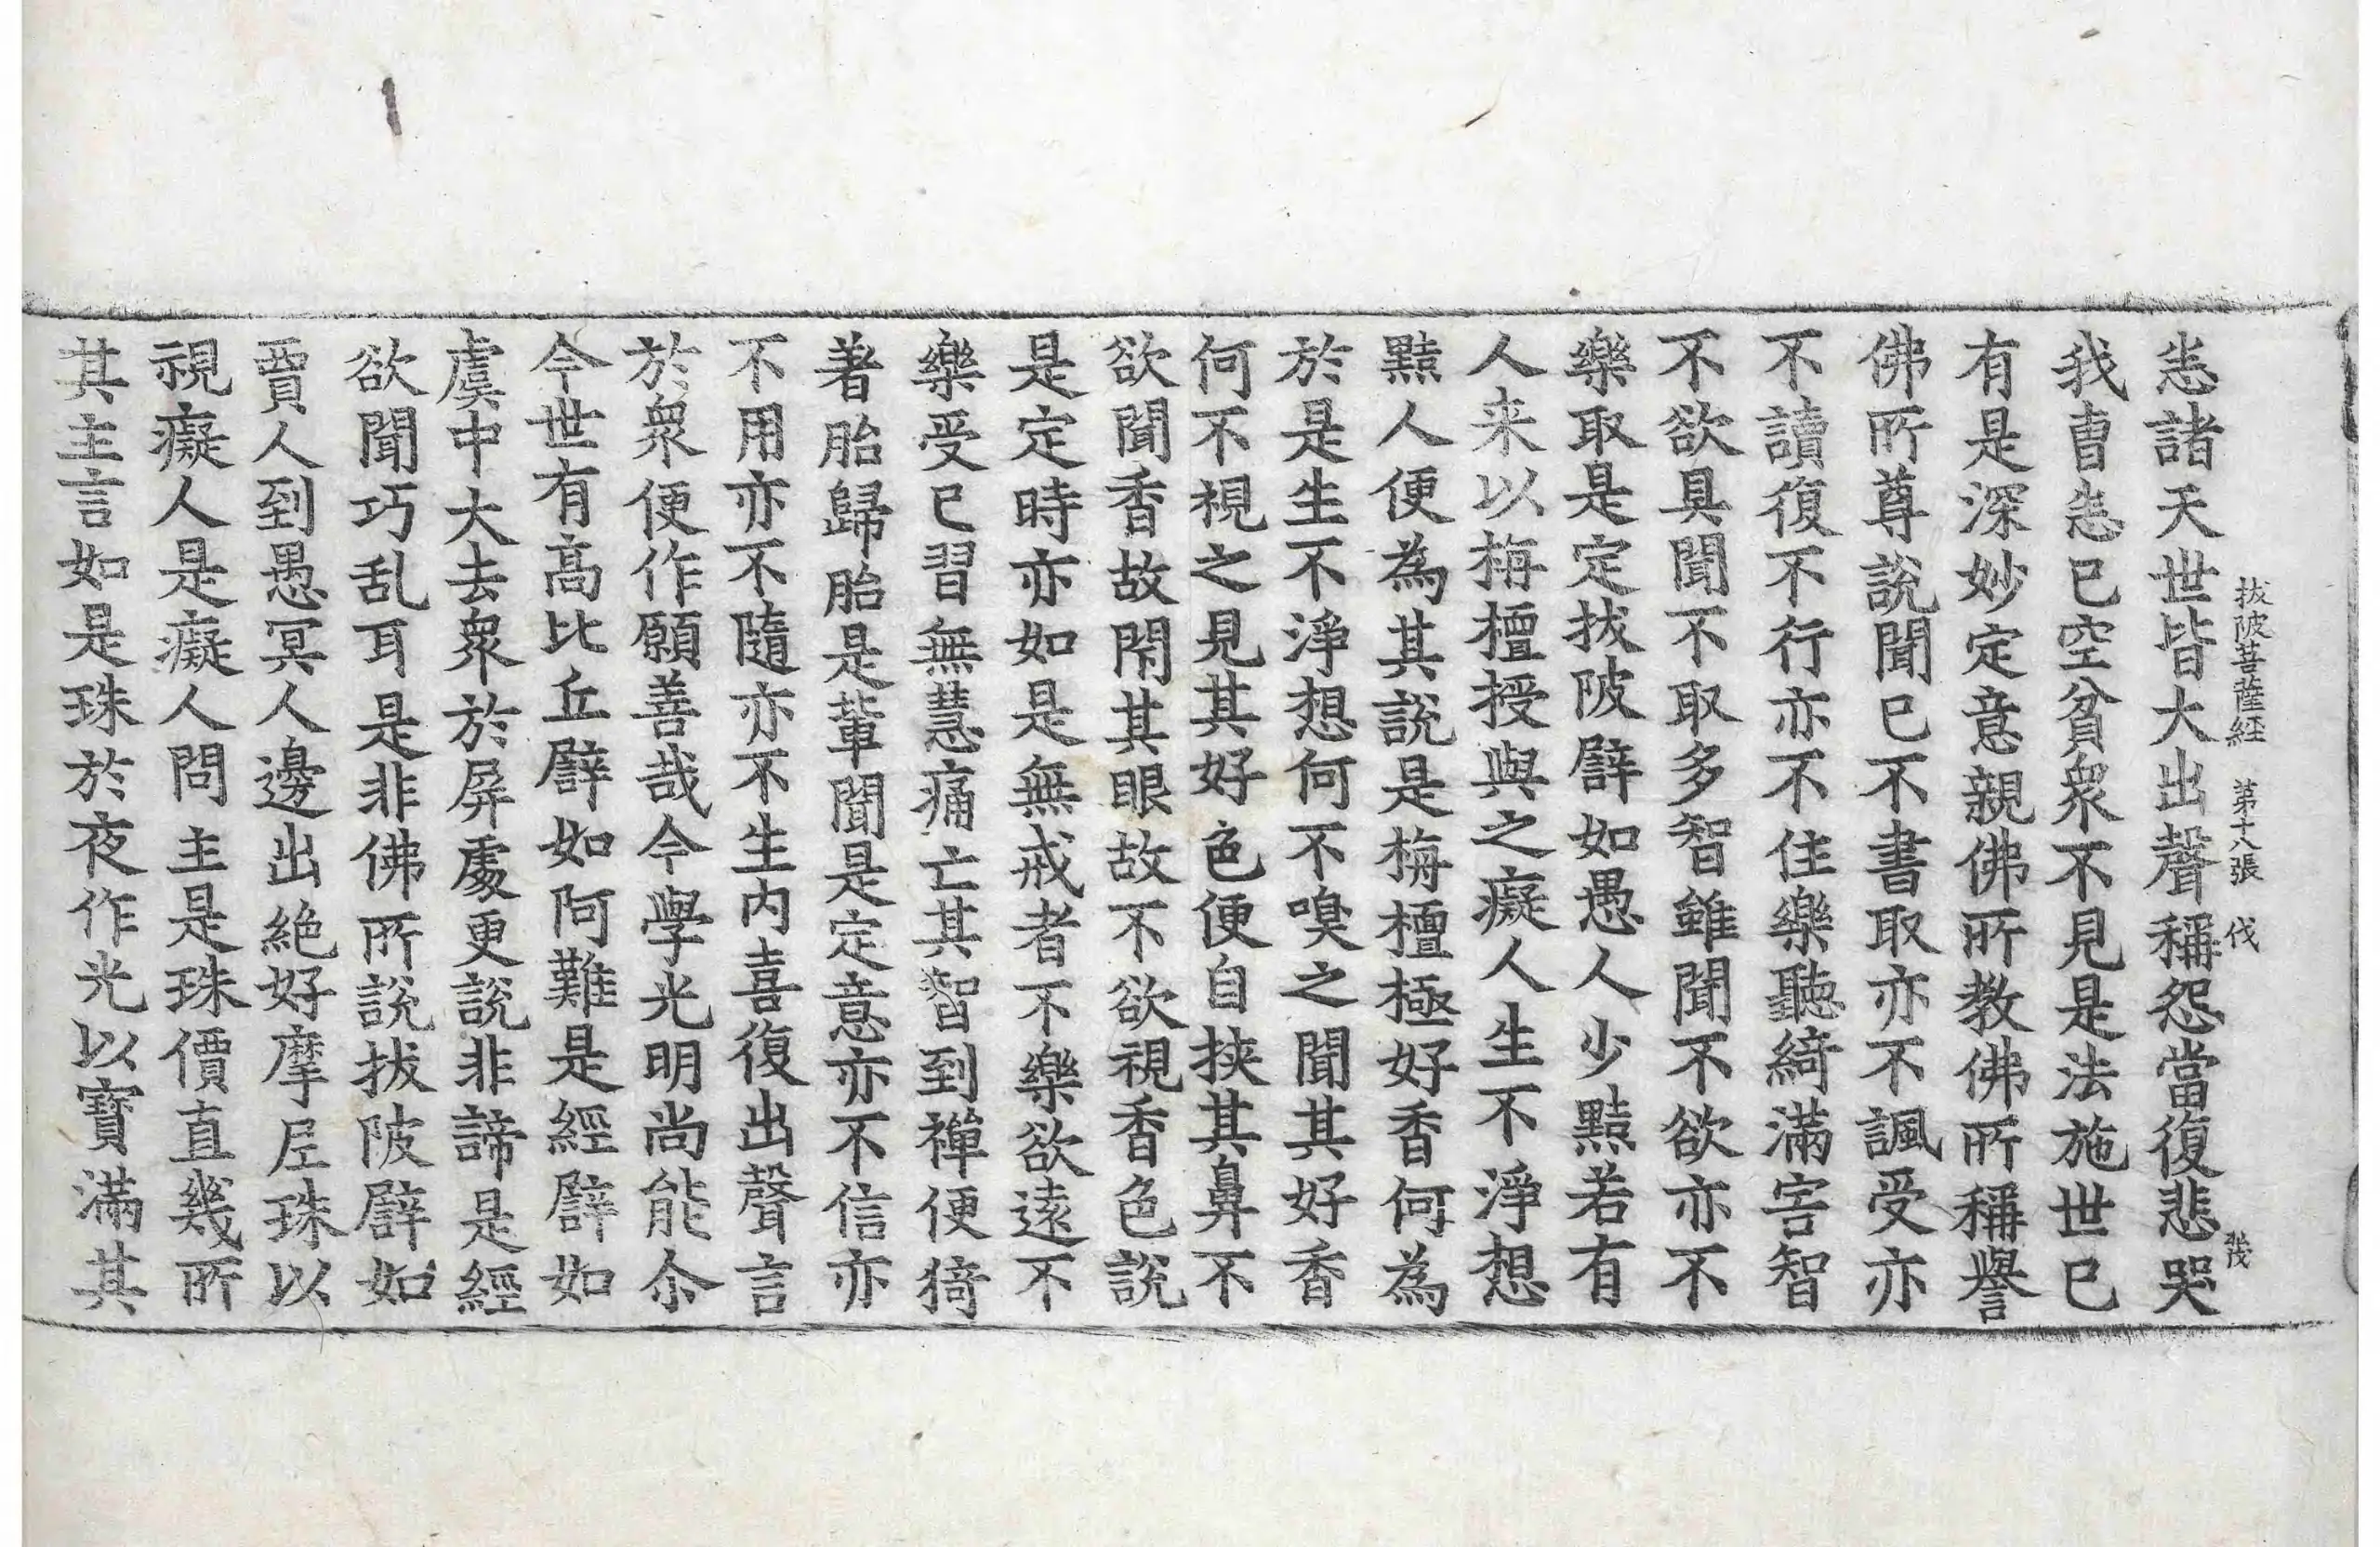 拔陂菩薩經　第十八張　伐
恙諸天世皆大出聲稱怨當復悲哭
我曺恙已空貧衆不見是法施世已
有是深妙定意親佛所教佛所稱譽
佛所尊說聞已不書取亦不諷受亦
不讀復不行亦不住樂聽綺滿害智
不欲具聞不取多智雖聞不欲亦不
樂取是定拔陂譬如愚人少黠若有
人来以栴檀授與之癡人生不淨想
黠人便為其說是栴檀極好香何為
於是生不淨想何不嗅之聞其好香
何不視之見其好色便自挾其鼻不
欲聞香故閇其眼故不欲視香色說
是定時亦如是無戒者不樂欲遠不
樂受已習無慧痛亡其智到禪便猗
著胎歸胎是軰聞是定意亦不信亦
不用亦不隨亦不生内喜復出聲言
於衆便作願善哉今學光明尚能尒
今世有高比丘譬如阿難是經譬如
虞中大去衆於屏處更說非諦是經
欲聞巧乱耳是非佛所說拔陂譬如
賈人到愚冥人邊出絶好摩尼珠以
視癡人是癡人問主是珠價直幾所
其主言如是珠於夜作光以寶滿其